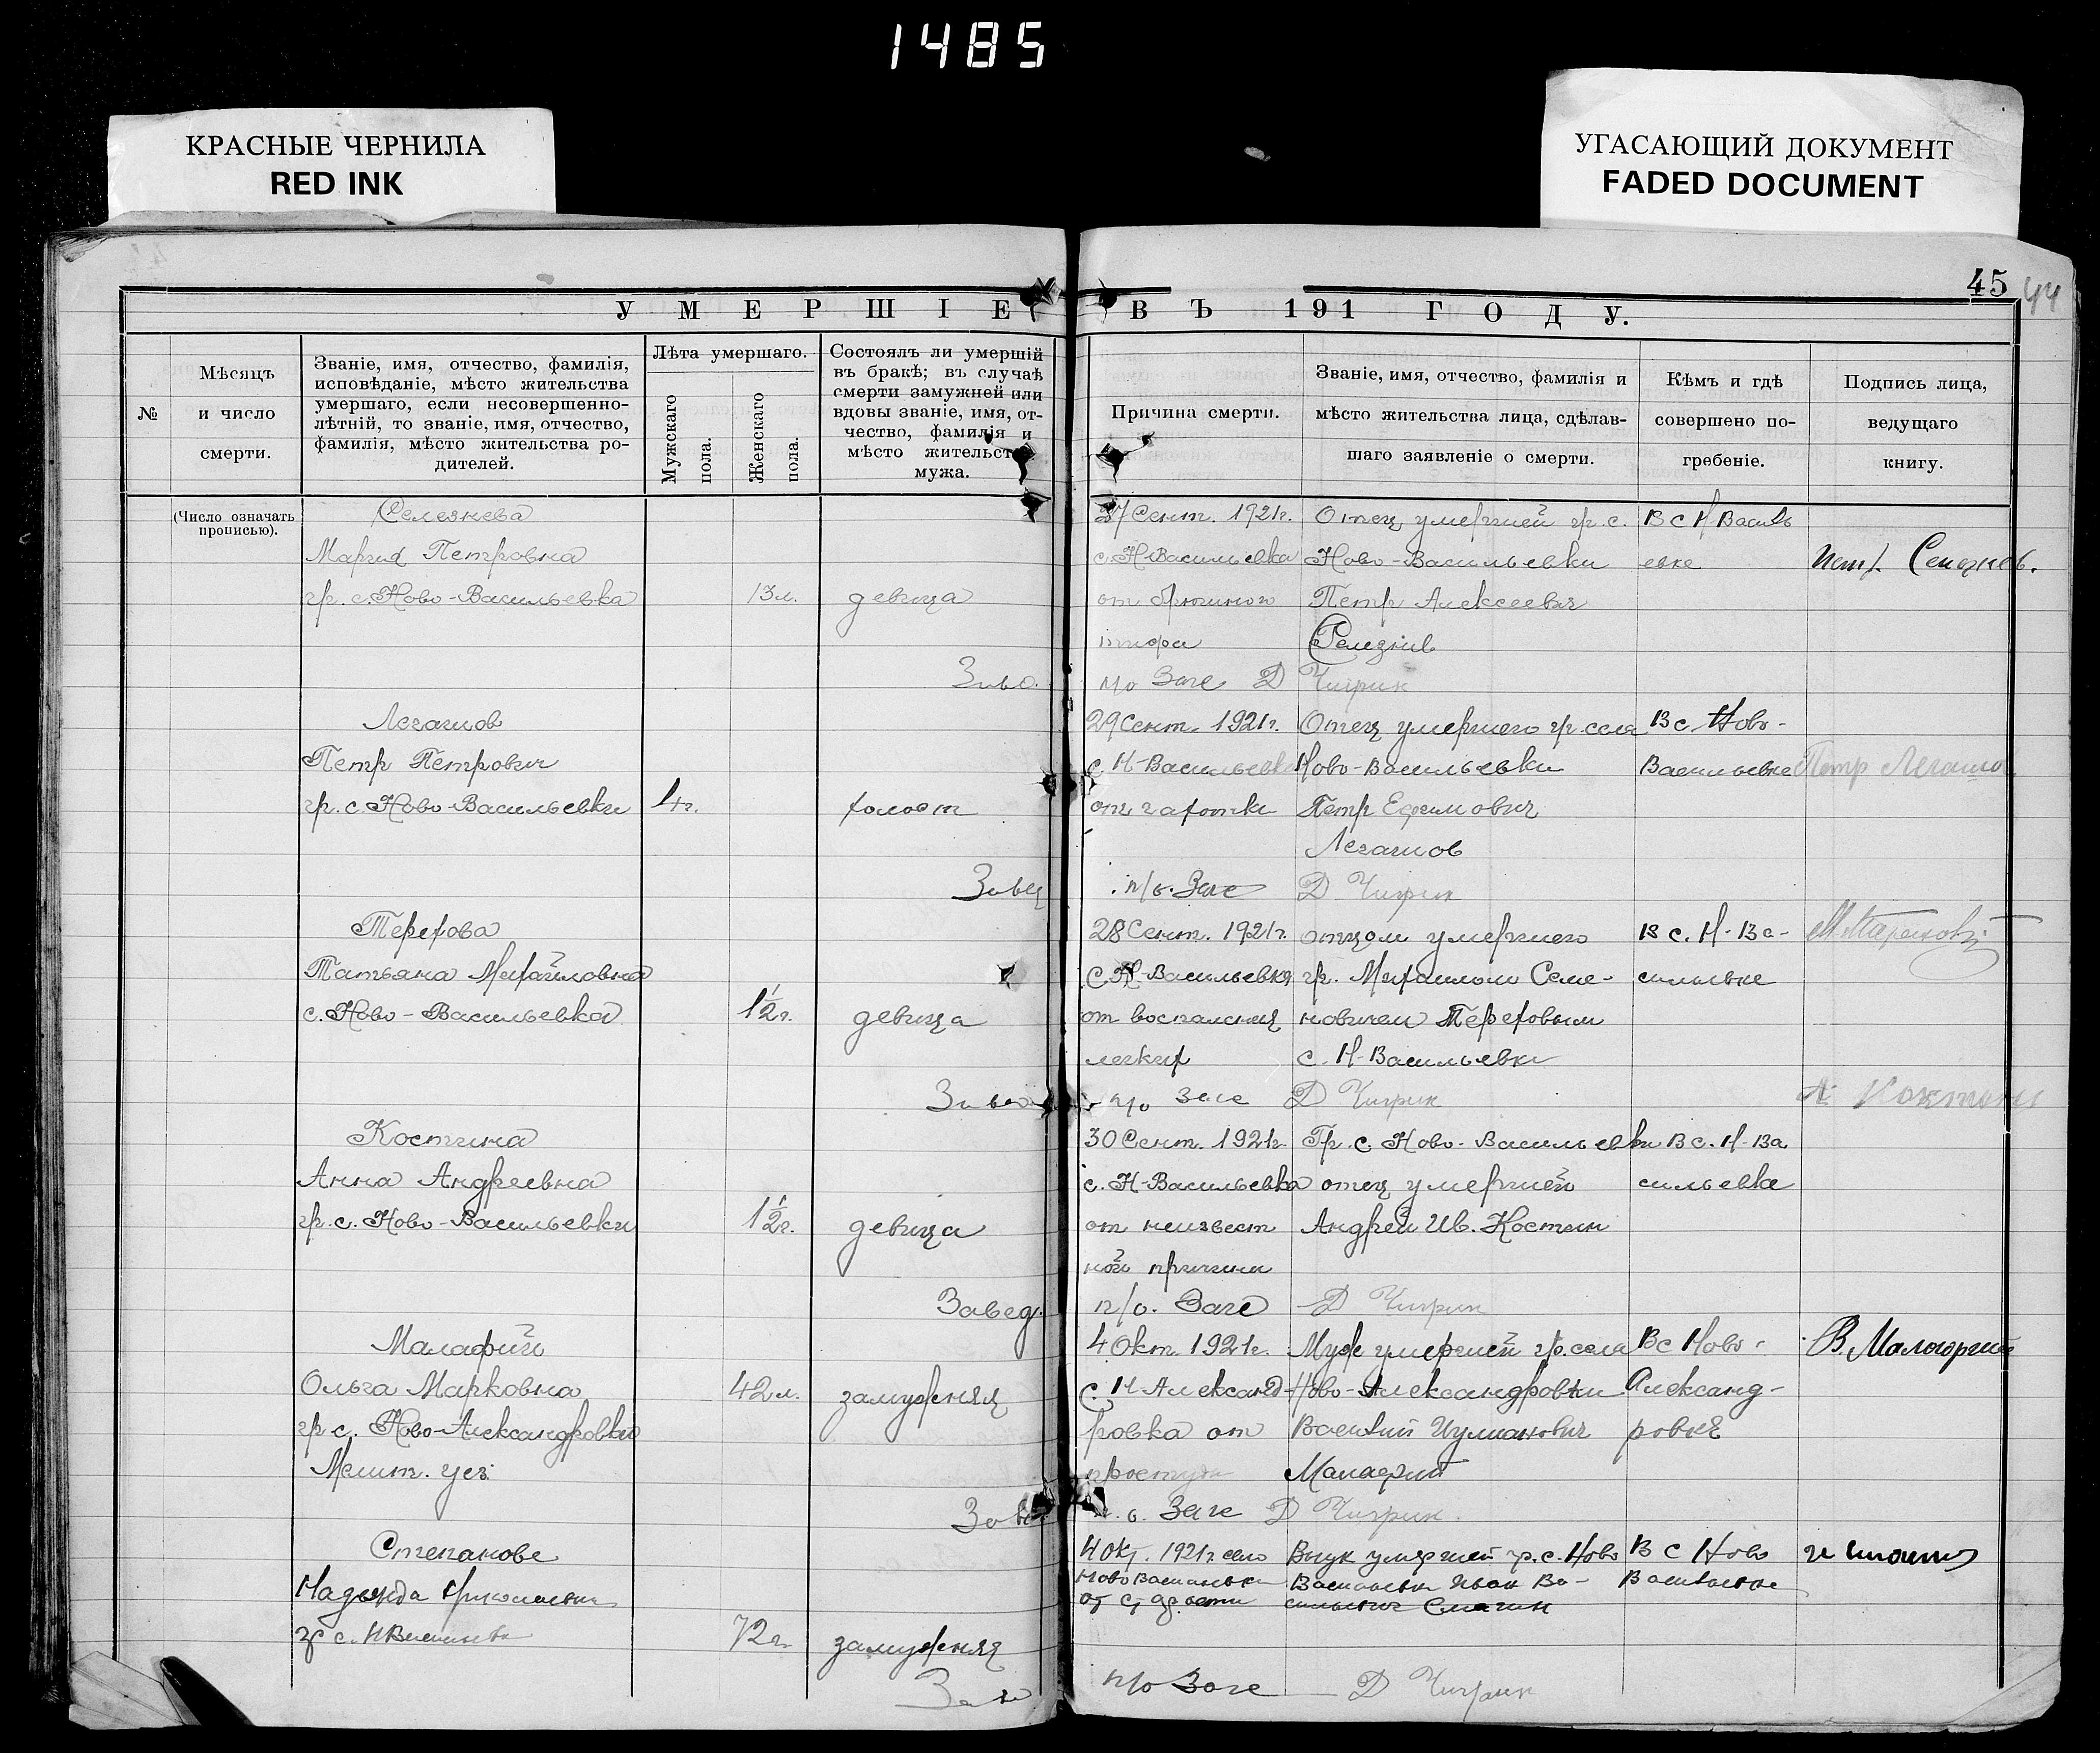 1485
КРАСНЫЕ ЧЕРНИЛА
RED INK
УГАСАЮЩИЙ ДОКУМЕНТ
FADED DOCUMENT
45
44
УМЕРШІЕ ВЪ 191 ГОДУ.
№
Мѣсяцъ
и число
смерти.
Званіе, имя, отчество, фамилія,
исповѣданіе, мѣсто жительства
умершаго, если несовершенно-
лѣтній, то званіе, имя, отчество,
фамилія, мѣсто жительства ро-
дителей.
Лѣта умершаго.
Мужскаго
пола.
Женскаго
пола.
Состоялъ ли умершій
въ бракѣ; въ случаѣ
смерти замужней или
вдовы званіе, имя, от-
чество, фамилія и
мѣсто жительст
мужа.
Причина смерти.
Званіе, имя, отчество, фамилія и
мѣсто жительства лица, сдѣлав-
шаго заявленіе о смерти.
Кѣмъ и гдѣ
совершено по-
гребеніе.
Подпись лица,
ведущаго
книгу.
(Число означать
прописью).
Селезнева
Мария Петровна
гр. с. Ново-Васильевка
13 л.
девица
27 Сент. 1921 г.
с. Н Васильевка
от брюшного
тифа
Отец умершей гр. с.
Ново-Васильевки
Петр Алексеевич
Селезнив
В с Н-Василь
евке
п/о Заге Д Чигрик
Легачиов
Петр Петрович
гр. с. Ново-Васильевки
4 г.
холост
29 Сент. 1921 г.
с Н-Васильевка
от чахотки
Отец умершего гр. села
Ново-Васильевки
Петр Ефимович
Легачиов
В с Ново-
Васильевке
Завед
п/о. Заге Д Чигрик
Терехова
Татьяна Михайловна
с. Ново-Васильевка
1½ г.
девица
28 Сент. 1921 г.
с Н-Васильевка
от воспаления
легких
отцом умершего
гр. Михаилом Семе-
новичем Тереховым
с. Н-Васильевки
В с. Н-Ва-
сильевке
п/о Заге Д Чигрик
Костина
Анна Андреевна
гр. с. Ново-Васильевки
1½ г.
девица
30 Сент. 1921 г.
с. Н-Васильевка
от неизвест
ной причини
Гр. с. Ново-Васильевки
отец умершей
Андрей Ив. Костин
В с. Н-Ва
сильевке
Завед.
п/о. Заге Д Чигрик
Малафий
Ольга Марковна
гр с. Ново-Александровки
Мелит. уез.
42 л.
замужняя
4 Окт. 1921 г.
с. Н Александ-
ровка от
простуди
Муж умершей гр. села
Ново-Александровки
Василий
Малафий
В с Ново-
Александ-
ровке
В. Малафий
Заге Д Чигрик.
Степанова
Надежда Николаевна
72 г.
замужняя
4 Окт. 1921 г. село
Ново Васильевка
от старости
Внук умершей гр. с. Ново
Васильевки Иван Ва-
сильевич Смагин
В с Ново
Васильевке
п/о Заге Д Чигрик